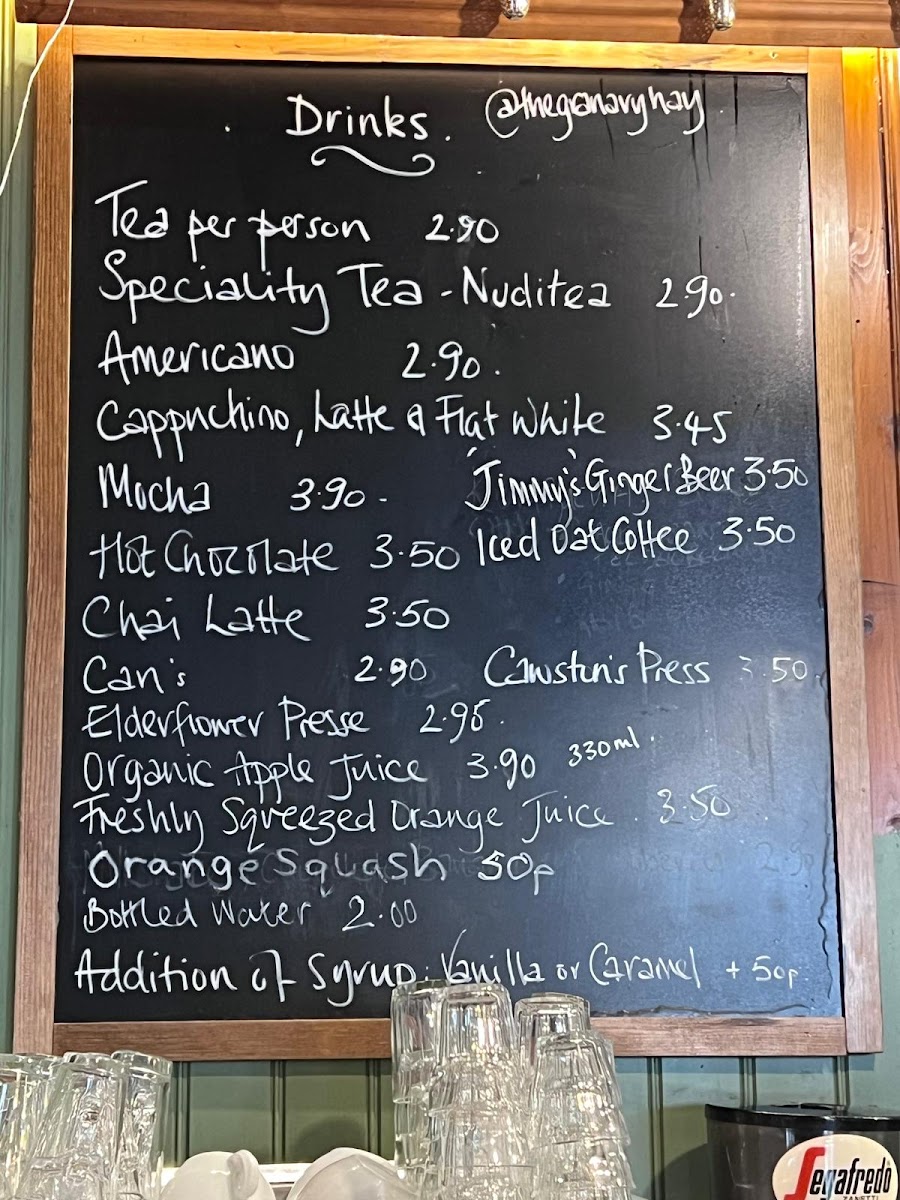 Drinks. @thegranaryhay
Tea per person 2.90
Speciality Tea - Nuditea 2.90.
Americano 2.90.
Cappuchino, Latte & Flat White 3.45
Mocha 3.90 - Jimmy's Ginger Beer 3.50
Hot Chocolate 3.50 Iced Oat Coffee 3.50
Chai Latte 3.50
Can's 2.90 Cawston's Press 3.50.
Elderflower Presse 2.95.
Organic Apple Juice 3.90 330ml.
Freshly Squeezed Orange Juice. 3.50
Orange Squash 50p
Bottled Water 2.00
Addition of Syrup: Vanilla or Caramel + 50p.
Segafredo
ZANETTI